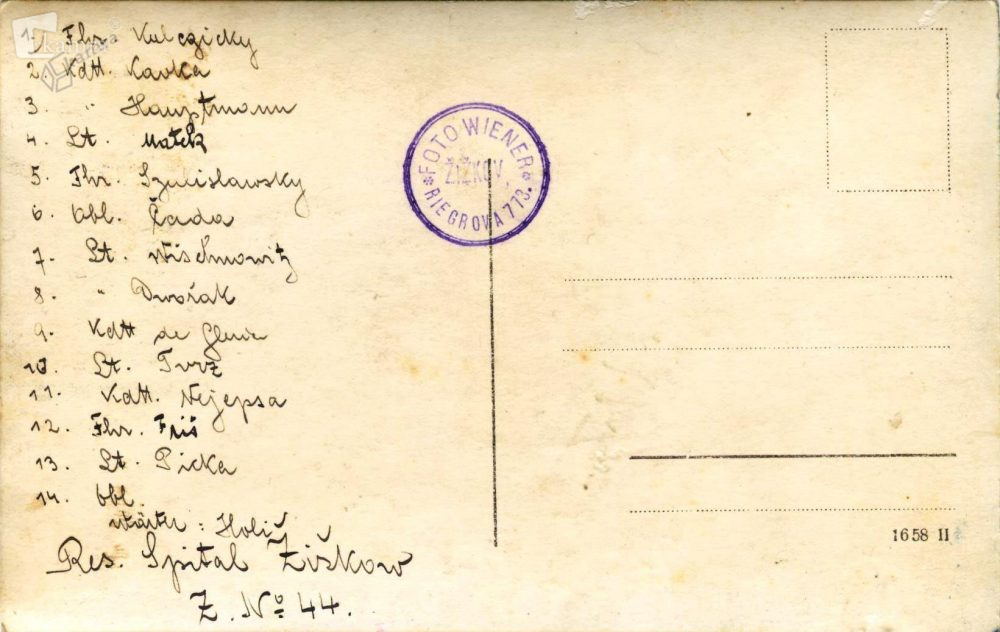 1. Fhr. Kulczicky
2. Kdtt. Kavka
3 " Hauptmann
4. Lt. Matek
5. Fhr. Szmislawsky
6. Obl. Čada
7. Lt. Wischnowitz
8. " Dvořak
9. Kdtt de
10. Lt. Tvrz
11. Kdtt. Nejepsa
12. Fhr. Friš
13. Lt. Picka
14. Obl.
: Holič
Res. Spital Žiškow
Z. No 44.
*FOTO WIENER*
ŽIŽKOV,
RIEGROVA 773.
1658 II